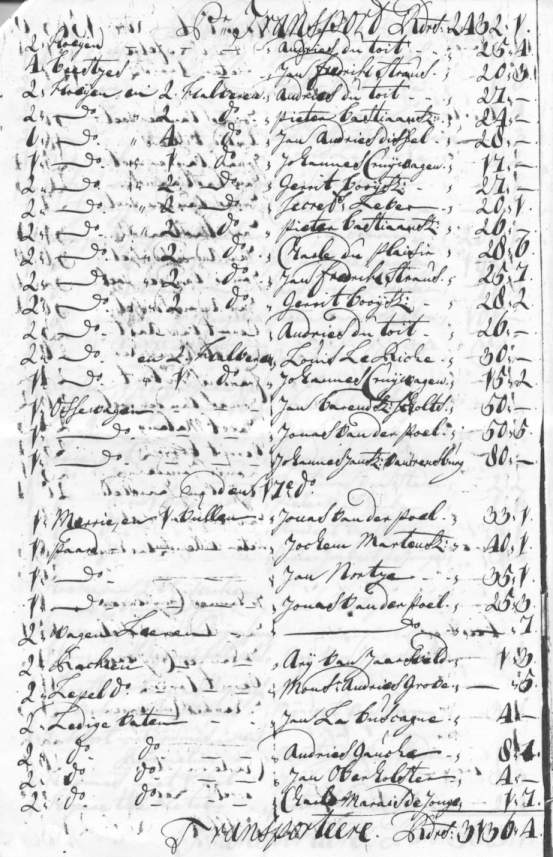 P:r Transport Rdrs: 2432. 1.
2 Koeyen " Andries du toit " 25. 4.
4 beesjes " Jan fredrik Straus " 20. 3.
2 Koeyen en 2 Kalveren " Andries du toit " 27. –
2 – do " 2 do " pieter bastiaansz " 24. –
1 – do " 4 do " Jan Andries dissel " 28. –
1 – do " 1 do " Johannes Cruijwagen " 17. –
2 – do " 2 do " Gerrit booijsz " 27. –
2 – do " 2 do " Secret: Leber " 20. 1.
2 – do " 2 do " pieter bastiaansz " 26.
2 – do " 2 do " Charle du plaisir " 28. 6
2 – do " 2 do " Jan fredrik Straus " 25. 1
2 – do " 2 do " Gerrit booijsz " 28. 2
2 – do " Andries du toit " 26. –
2 – do en 2 Kalveren " Louis Le Riche " 30. –
1 – do " 1 do " Johannes Cruijwagen " 15. 2
1 Ossewagen " Jan barentsz " 50. –
1 – do " Jonas van der poel " 50. 5
1 – do " Johannes Jansz van rensburg 80. –
den 17e do
1 Merrie en 1 vullen " Jonas van der poel " 33. 1
1 paard " Jochem Martensz " 40. 1
1 – do " Jan Nortge " 35. 1
1 – do " Jonas van der poel " 25. 3
2 wagen Leeren " do " 7
2 " Arij van Jaarsveld 1. 3
2 Lepel do " Mons: Andries Grove " – 5
2 Ledige vaten " Jan La buscagne " 4. –
2 do do " Andries Gauche " 8. 4
2 do do " Jan Oberholster " 4. –
2 do do " Charle Marais de Jonge " 1. 7
Transporteere Rdrs: 3136. 4.